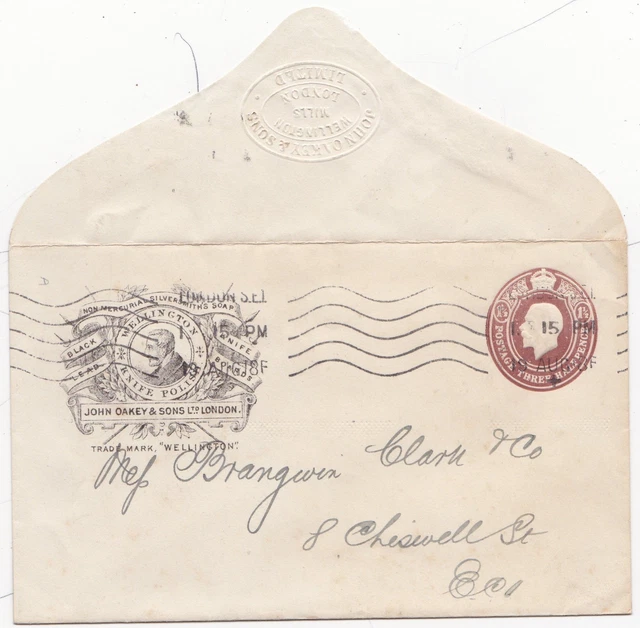 JOHN OAKEY & SONS
WELLINGTON
MILLS
LONDON
LIMITED
LONDON S.E.1.
NON MERCURIAL SILVERSMITHS SOAP
WELLINGTON
BLACK LEAD
KNIFE BOARDS
KNIFE POLISH
JOHN OAKEY & SONS LTD LONDON.
TRADE MARK, "WELLINGTON".
15 PM
18F
POSTAGE THREE HALF PENCE
15 PM
Mess Brangwin Clark & Co
8 Chiswell St
EC1